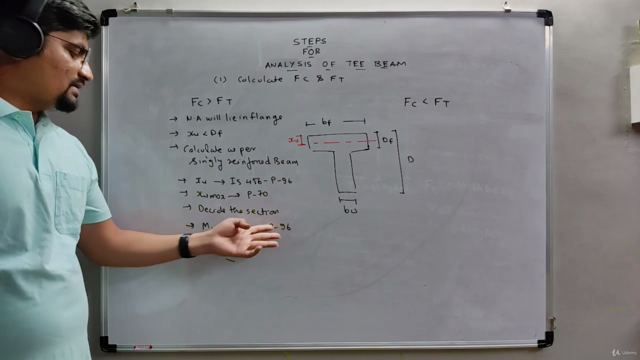 STEPS
FOR
ANALYSIS OF TEE BEAM
(1) Calculate Fc & FT
Fc > FT
Fc < FT
→ N.A will lie in flange
→ xu < Df
→ Calculate as per
Singly reinforced Beam
→ xu → IS 456-P-96
→ xumax → P-70
→ Decide the section
→ M -96
bf
xu
Df
D
bw
Udemy